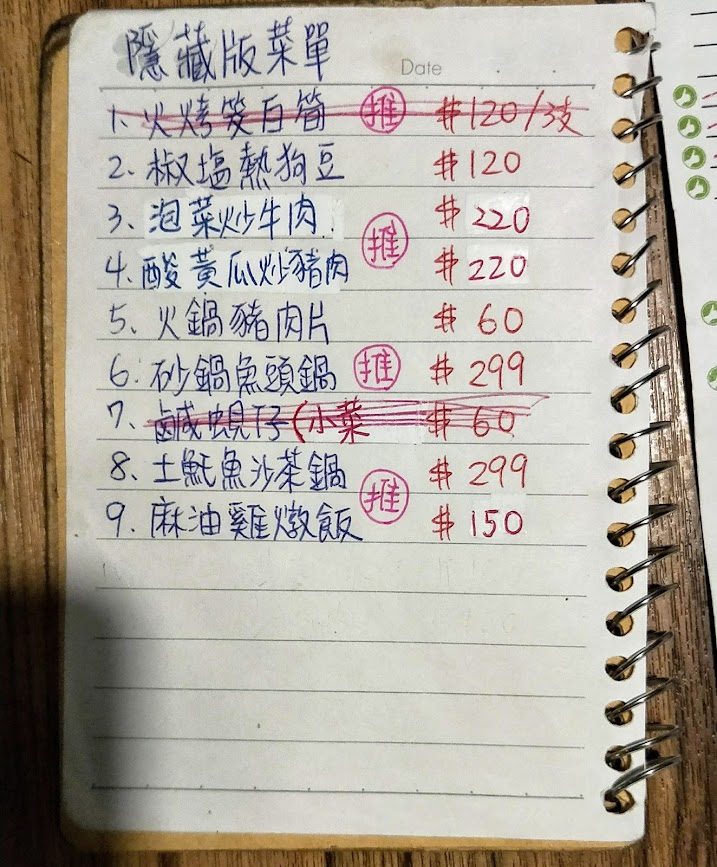 隱藏版菜單
Date
1、火烤筊白筍 推 $120/支
2、椒塩熱狗豆 $120
3、泡菜炒牛肉 $220
推
4、酸黃瓜炒豬肉 $220
5、火鍋豬肉片 $60
6、砂鍋魚頭鍋 推 $299
7、鹹蜆仔(小菜 $60
8、土魠魚沙茶鍋 $299
推
9、麻油雞燉飯 $150